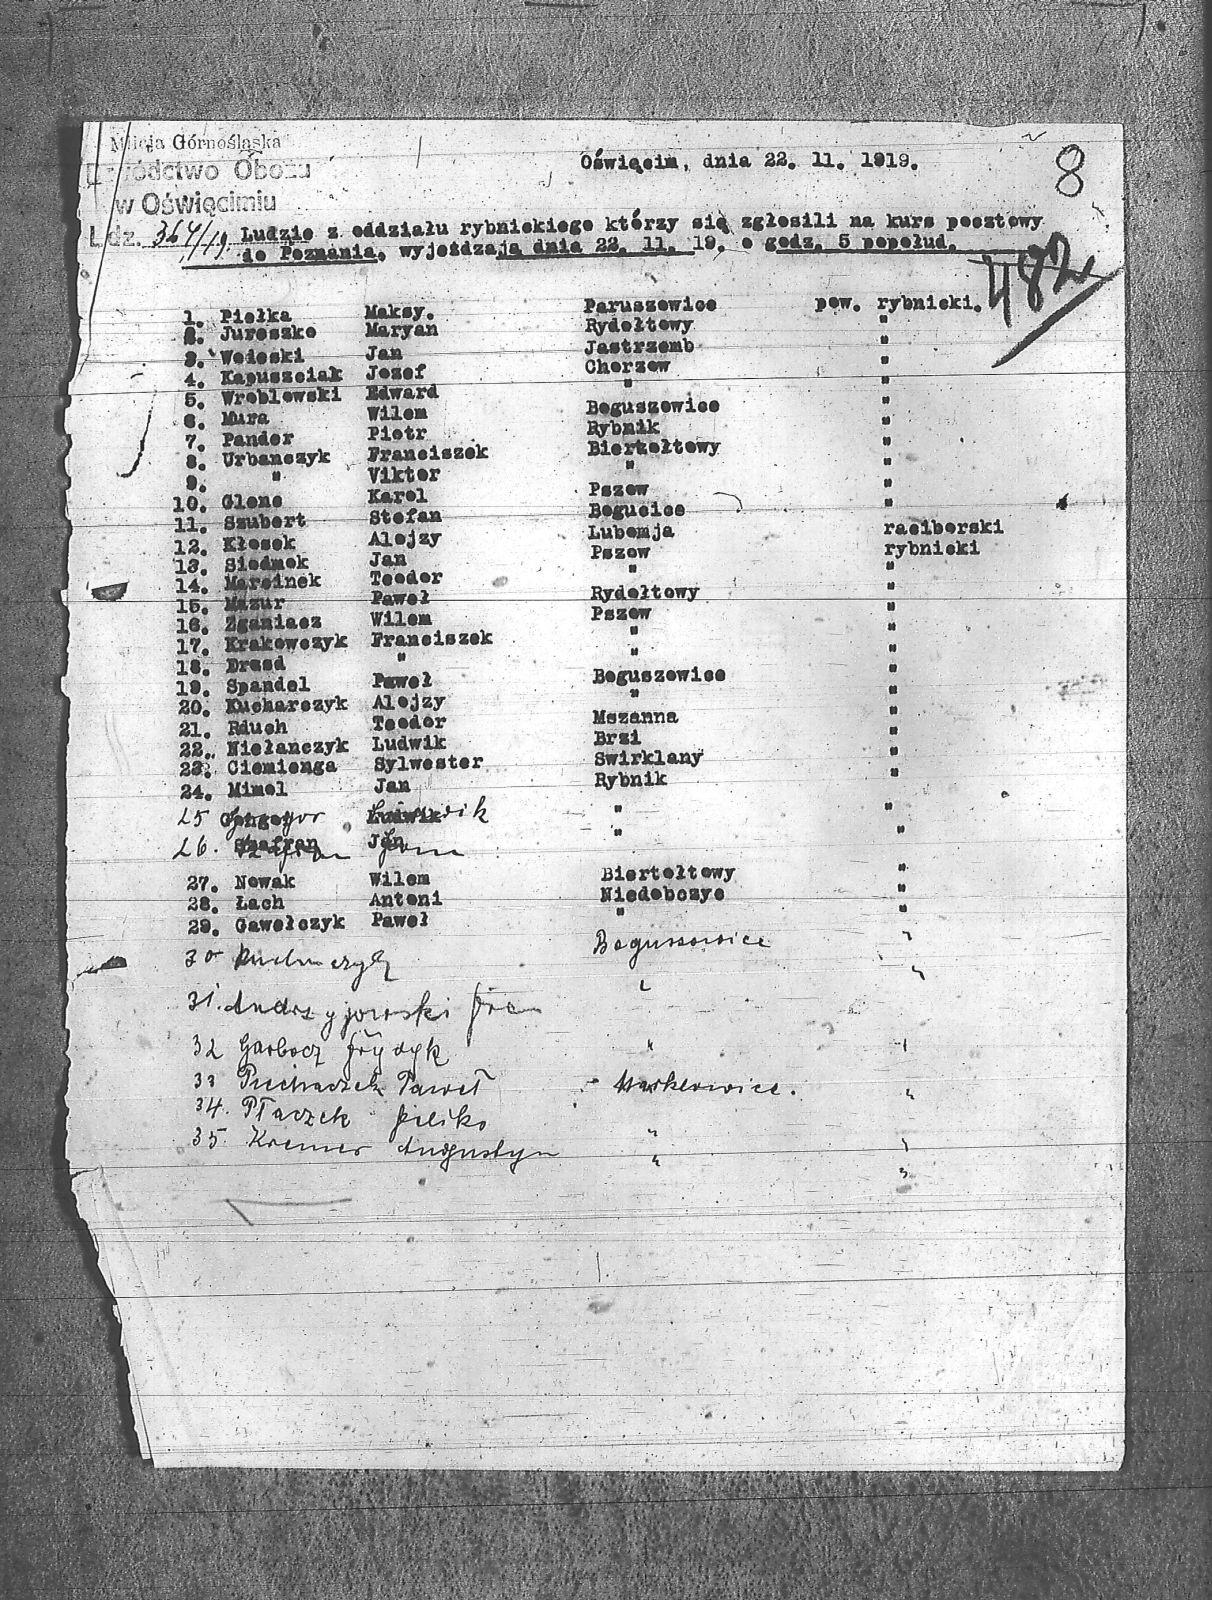 Milicja Górnośląska
Oświęcim, dnia 22. 11. 1919.
8
Dowództwo Obozu
w Oświęcimiu
Ldz. 364/19 Ludzie z oddziału rybnickiego którzy się zgłosili na kurs pocztowy
do Poznania, wyjeżdzają dnia 22. 11. 19. o godz. 5 popołud.
482
1. Piełka Maksy. Paruszowice pow. rybnicki.
2. Juroszko Maryan Rydołtowy "
3. Woioski Jan Jastrzemb "
4. Kapuszciak Jozef Chorzow "
5. Wroblowski Edward " "
6. Mura Wilem Boguszowice "
7. Pander Piotr Rybnik "
8. Urbanczyk Franciszek Biertołtowy "
9. " Viktor " "
10. Glenc Karol Pszow "
11. Szubert Stefan Bogucice "
12. Kłosek Alojzy Lubomja raciborski
13. Siedmok Jan Pszow rybnicki
14. Marcinek Teodor " "
15. Mazur Paweł Rydołtowy "
16. Zganiacz Wilem Pszow "
17. Krakowczyk Franciszek " "
18. Drasd " " "
19. Spandel Paweł Boguszowice "
20. Kucharczyk Alojzy " "
21. Rduch Teodor Mszanna "
22. Niełanczyk Ludwik Brzi "
23. Ciemienga Sylwester Swirklany "
24. Mimol Jan Rybnik "
25 Ludwik " "
26. Szafran Jan " "
27. Nowak Wilem Biertołtowy "
28. Łach Antoni Niedobczyc "
29. Gawełczyk Paweł " "
30 Boguszowice "
31. Andrzyjowski " "
32 Garbocz Frydyk " "
33 Piechaczek Paweł - Markłowice. "
34. Płaczek " "
35 Kremer Augustyn " "